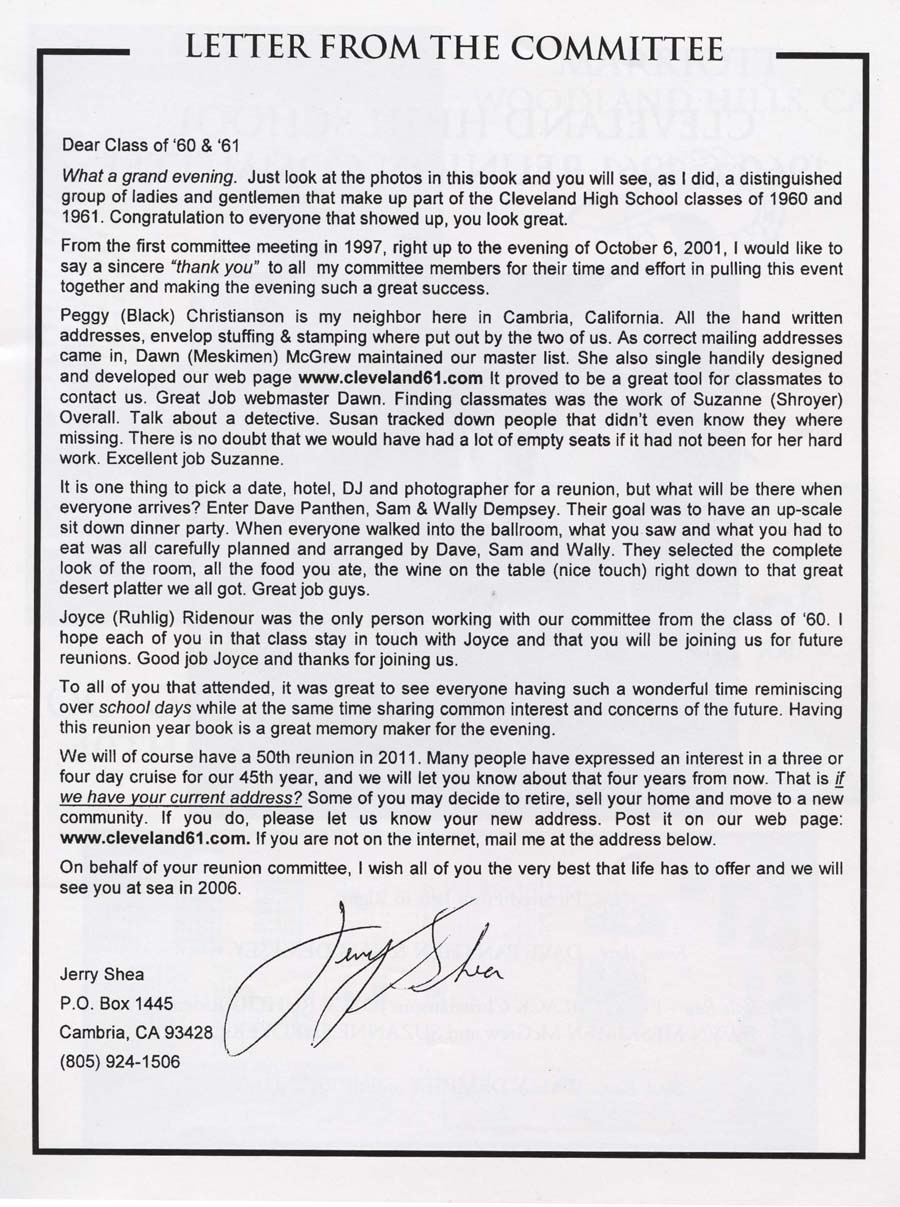 LETTER FROM THE COMMITTEE
Dear Class of ‘60 & ‘61
What a grand evening. Just look at the photos in this book and you will see, as I did, a distinguished
group of ladies and gentlemen that make up part of the Cleveland High School classes of 1960 and
1961. Congratulation to everyone that showed up, you look great.
From the first committee meeting in 1997, right up to the evening of October 6, 2001, I would like to
say a sincere “thank you” to all my committee members for their time and effort in pulling this event
together and making the evening such a great success.
Peggy (Black) Christianson is my neighbor here in Cambria, California. All the hand written
addresses, envelop stuffing & stamping where put out by the two of us. As correct mailing addresses
came in, Dawn (Meskimen) McGrew maintained our master list. She also single handily designed
and developed our web page www.cleveland61.com It proved to be a great tool for classmates to
contact us. Great Job webmaster Dawn. Finding classmates was the work of Suzanne (Shroyer)
Overall. Talk about a detective. Susan tracked down people that didn’t even know they where
missing. There is no doubt that we would have had a lot of empty seats if it had not been for her hard
work. Excellent job Suzanne.
It is one thing to pick a date, hotel, DJ and photographer for a reunion, but what will be there when
everyone arrives? Enter Dave Panthen, Sam & Wally Dempsey. Their goal was to have an up-scale
sit down dinner party. When everyone walked into the ballroom, what you saw and what you had to
eat was all carefully planned and arranged by Dave, Sam and Wally. They selected the complete
look of the room, all the food you ate, the wine on the table (nice touch) right down to that great
desert platter we all got. Great job guys.
Joyce (Ruhlig) Ridenour was the only person working with our committee from the class of ‘60. I
hope each of you in that class stay in touch with Joyce and that you will be joining us for future
reunions. Good job Joyce and thanks for joining us.
To all of you that attended, it was great to see everyone having such a wonderful time reminiscing
over school days while at the same time sharing common interest and concerns of the future. Having
this reunion year book is a great memory maker for the evening.
We will of course have a 50th reunion in 2011. Many people have expressed an interest in a three or
four day cruise for our 45th year, and we will let you know about that four years from now. That is if
we have your current address? Some of you may decide to retire, sell your home and move to a new
community. If you do, please let us know your new address. Post it on our web page:
www.cleveland61.com. If you are not on the internet, mail me at the address below.
On behalf of your reunion committee, I wish all of you the very best that life has to offer and we will
see you at sea in 2006.
Jerry Shea
Jerry Shea
P.O. Box 1445
Cambria, CA 93428
(805) 924-1506